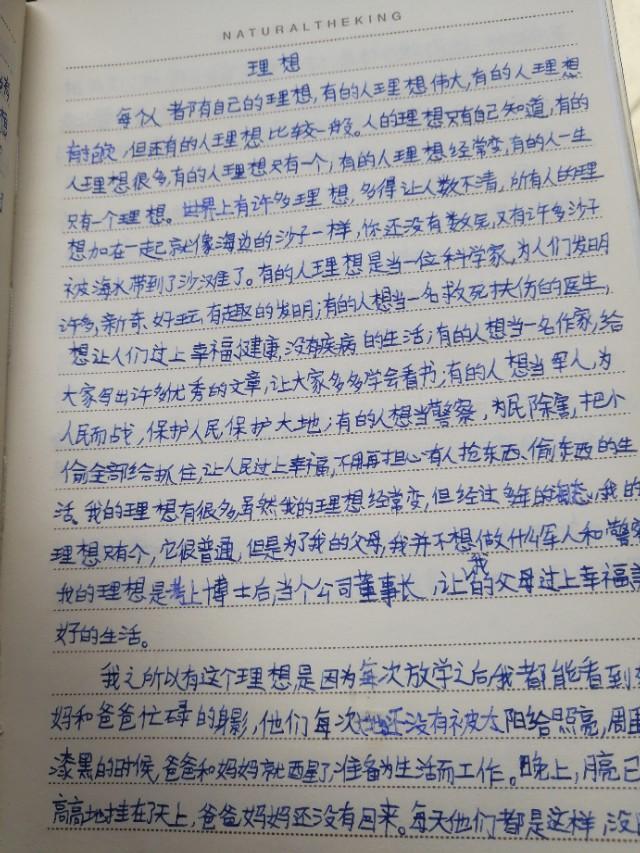 NATURALTHEKING
理想
每个人都有自己的理想,有的人理想伟大,有的人理想
有趣,但还有的人理想比较一般。人的理想只有自己知道,有的
人理想很多,有的人理想只有一个,有的人理想经常变,有的人一生
只有一个理想。世界上有许多理想,多得让人数不清,所有人的理
想加在一起就像海边的沙子一样,你还没有数完,又有许多沙子
被海水带到了沙滩了。有的人理想是当一位科学家,为人们发明
许多,新奇、好玩,有趣的发明;有的人想当一名救死扶伤的医生,
想让人们过上幸福健康,没有疾病的生活;有的人想当一名作家,给
大家写出许多优秀的文章,让大家多多学会看书;有的人想当军人,为
人民而战,保护人民保护大地;有的人想当警察,为民除害,把小
偷全部给抓住,让人民过上幸福,不用再担心有人抢东西、偷东西的生
活。我的理想有很多,虽然我的理想经常变,但经过多年的 我的
理想只有个,它很普通,但是为了我的父母,我并不想做什么军人和警察
我的理想是考上博士后,当个公司董事长,让我的父母过上幸福美
好的生活。
我之所以有这个理想是因为每次放学之后,我都能看到
妈和爸爸忙碌的身影,他们每次 还没有被太阳给照亮,周围
漆黑的时候,爸爸和妈妈就 准备为生活而工作。晚上,月亮已
高高地挂在了天上,爸爸妈妈还没有回来。每天他们都是这样,没